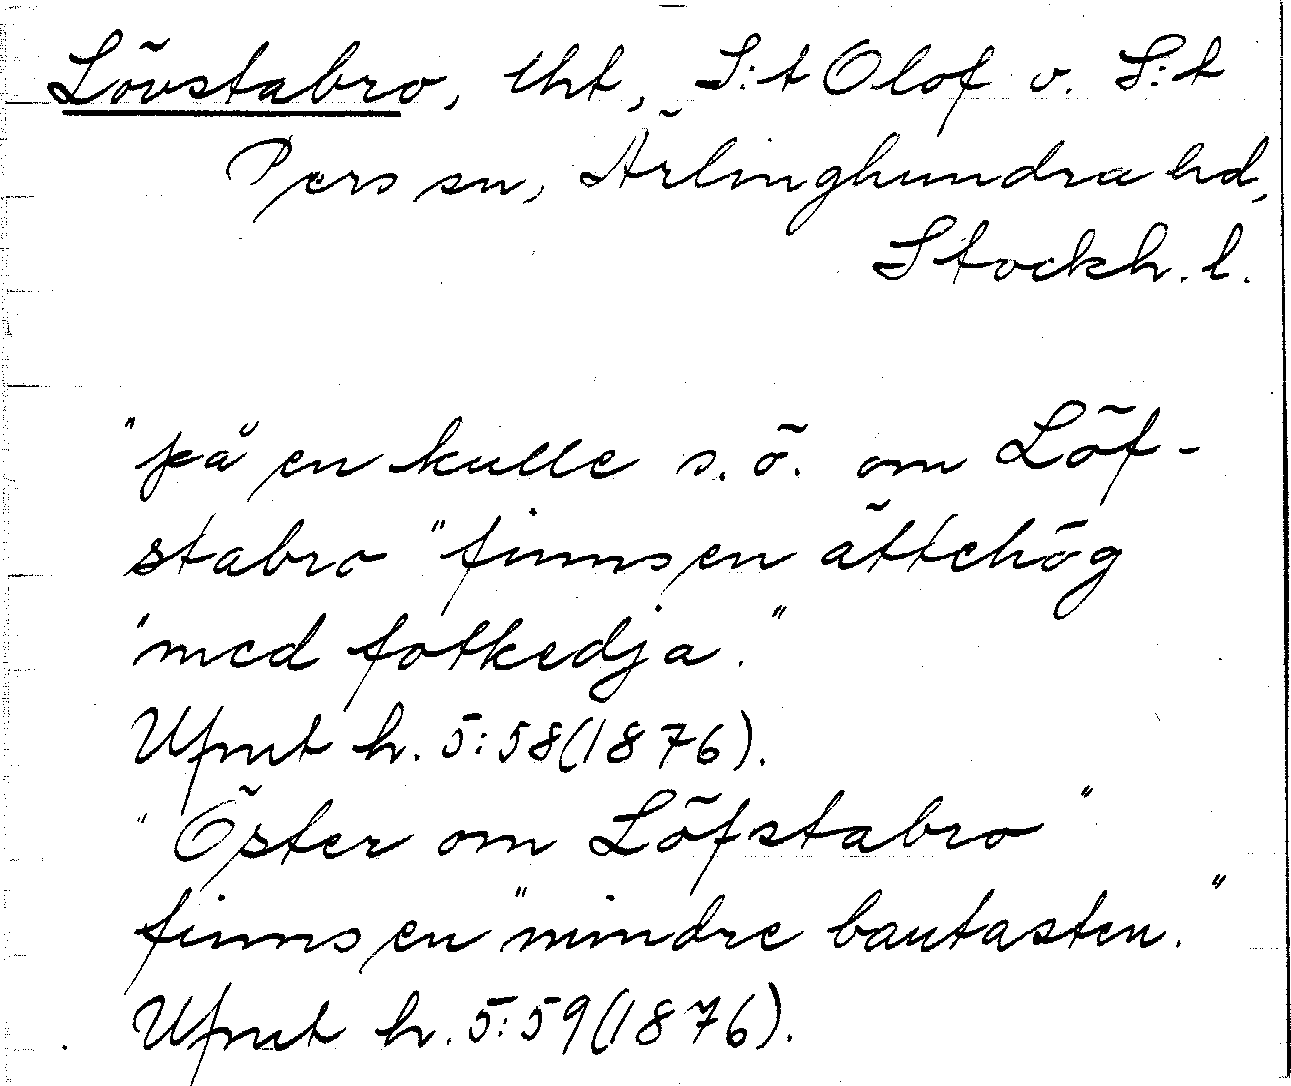 Lövstabro, tht, S:t Olof o. S:t
Pers sn, Ärlinghundra hd,
Stockh. l.
"på en kulle s.ö. om Löf-
stabro" finns en ättehög
"med fotkedja."
Ufmt h. 5:58(1876).
"Öster om Löfstabro"
finns en "mindre bautasten."
Ufmt h. 5:59(1876).